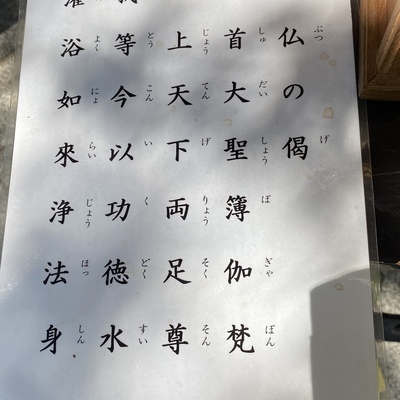 仏の偈
ぶつ げ
首大聖簿伽梵
しゅ だい しょう ぼ ぎゃ ぼん
上天下両足尊
じょう てん げ りょう そく そん
等今以功徳水
とう こん い く どく すい
浴如來浄法身
よく にょ らい じょう ほっ しん